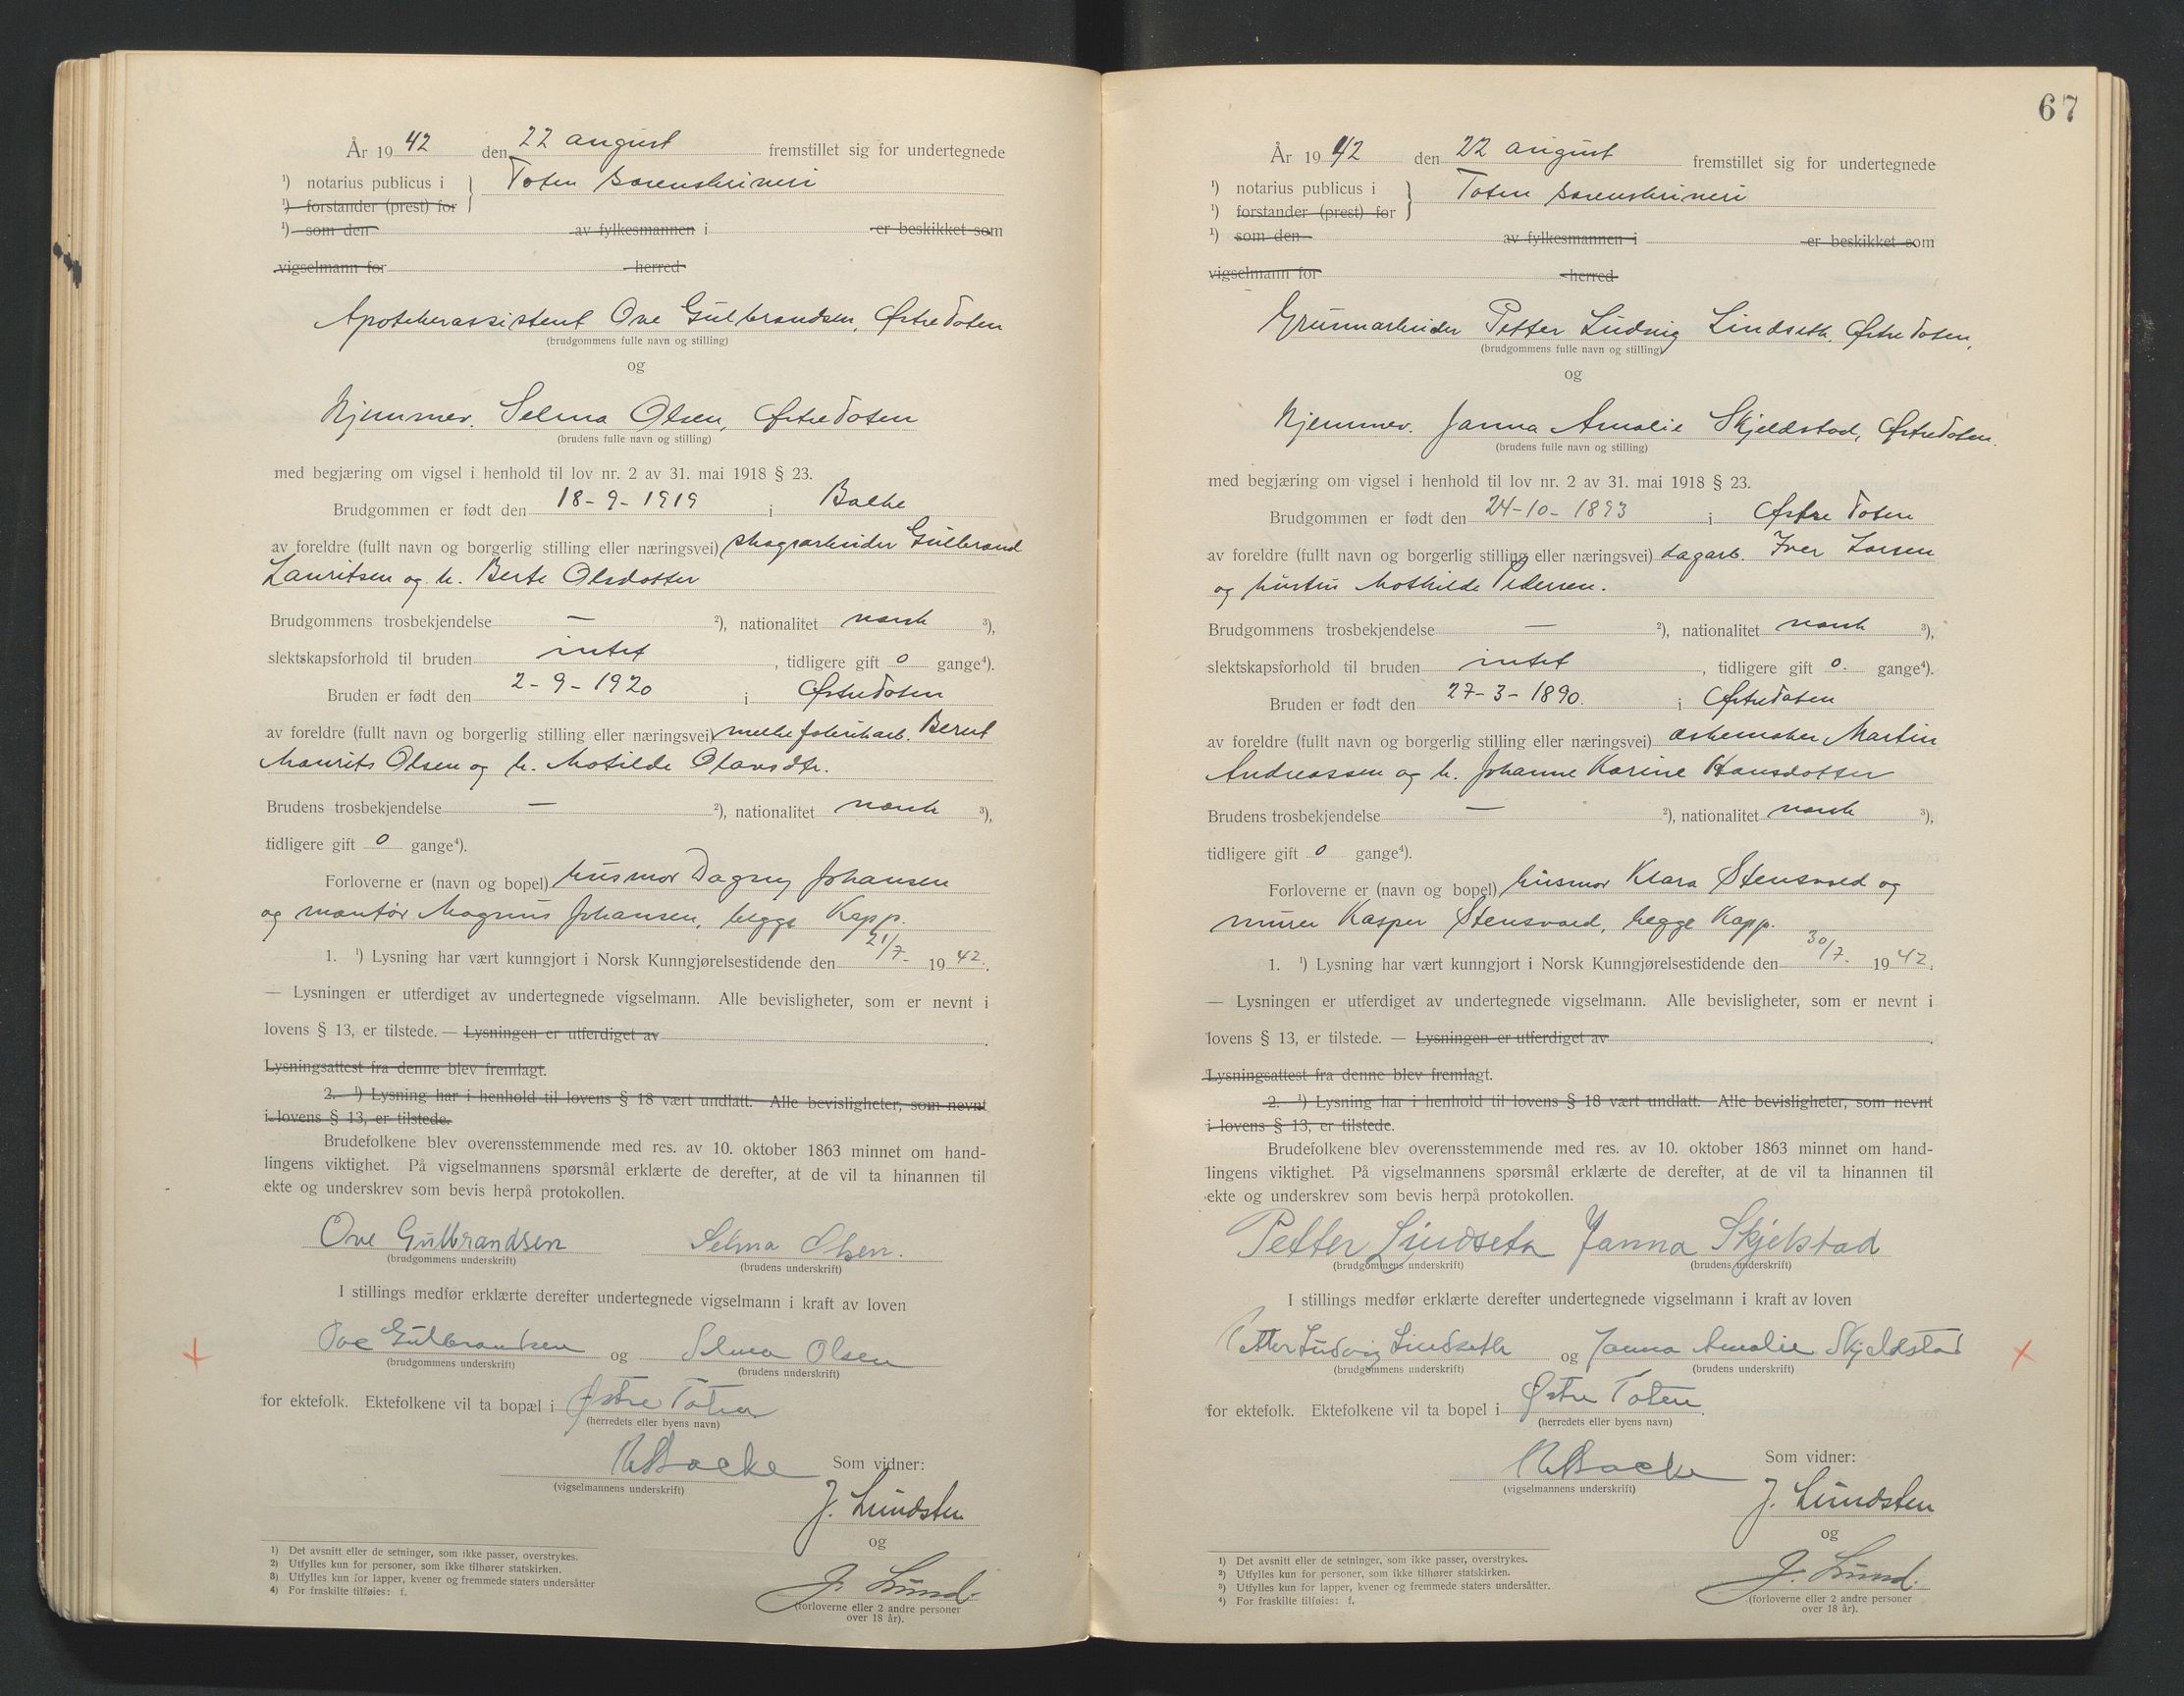 År 1942 den 22 august fremstillet sig for undertegnede
¹) notarius publicus i } Toten sorenskriveri
¹) forstander (prest) for
¹) som den av fylkesmannen i er beskikket som
vigselmann for herred
Apotekerassistent Ove Gulbrandsen, Østre Toten
(brudgommens fulle navn og stilling)
og
Hjemmev. Selma Olsen, Østre Toten
(brudens fulle navn og stilling)
med begjæring om vigsel i henhold til lov nr. 2 av 31. mai 1918 § 23.
Brudgommen er født den 18-9-1919 i Balke
av foreldre (fullt navn og borgerlig stilling eller næringsvei) skogsarbeider Gulbrand
Lauritsen og h. Berte Olsdotter
Brudgommens trosbekjendelse — ²), nationalitet norsk ³),
slektskapsforhold til bruden intet, tidligere gift 0 gange⁴).
Bruden er født den 2-9-1920 i Østre Toten
av foreldre (fullt navn og borgerlig stilling eller næringsvei) melkefabrikarb. Bernt
Maurits Olsen og h. Motilde Olavsdtr.
Brudens trosbekjendelse — ²), nationalitet norsk ³),
tidligere gift 0 gange⁴).
Forloverne er (navn og bopel) husmor Dagny Johansen
og montør Magnus Johansen, begge Kapp.
1. ¹) Lysning har vært kunngjort i Norsk Kunngjørelsestidende den 21/7. 1942.
— Lysningen er utferdiget av undertegnede vigselmann. Alle bevisligheter, som er nevnt i
lovens § 13, er tilstede. — Lysningen er utferdiget av .
Lysningsattest fra denne blev fremlagt.
2. ¹) Lysning har i henhold til lovens § 18 vært undlatt. Alle bevisligheter, som nevnt
i lovens § 13, er tilstede.
Brudefolkene blev overensstemmende med res. av 10. oktober 1863 minnet om hand-
lingens viktighet. På vigselmannens spørsmål erklærte de derefter, at de vil ta hinannen til
ekte og underskrev som bevis herpå protokollen.
Ove Gulbrandsen Selma Olsen.
(brudgommens underskrift) (brudens underskrift)
I stillings medfør erklærte derefter undertegnede vigselmann i kraft av loven
Ove Gulbrandsen og Selma Olsen
(brudgommens underskrift) (brudens underskrift)
for ektefolk. Ektefolkene vil ta bopæl i Østre Toten
(herredets eller byens navn)
Backe Som vidner:
(vigselmannens underskrift)
J. Lundsten
og
J. Lund.
(forloverne eller 2 andre personer
over 18 år).
1) Det avsnitt eller de setninger, som ikke passer, overstrykes.
2) Utfylles kun for personer, som ikke tilhører statskirken.
3) Utfylles kun for lapper, kvener og fremmede staters undersåtter
4) For fraskilte tilføies: f.
67
År 1942 den 22 august fremstillet sig for undertegnede
¹) notarius publicus i } Toten sorenskriveri
¹) forstander (prest) for
¹) som den av fylkesmannen i er beskikket som
vigselmann for herred
Grunnarbeider Petter Ludvig Lindseth, Østre Toten,
(brudgommens fulle navn og stilling)
og
Hjemmev. Janna Amalie Skjeldstad, Østre Toten.
(brudens fulle navn og stilling)
med begjæring om vigsel i henhold til lov nr. 2 av 31. mai 1918 § 23.
Brudgommen er født den 24-10-1893 i Østre Toten
av foreldre (fullt navn og borgerlig stilling eller næringsvei) dagarb. Iver Larsen
og hustru Mathilde Pedersen.
Brudgommens trosbekjendelse — ²), nationalitet norsk ³),
slektskapsforhold til bruden intet, tidligere gift 0. gange⁴).
Bruden er født den 27-3-1890. i Østre Toten
av foreldre (fullt navn og borgerlig stilling eller næringsvei) Martin
Andreassen og h. Johanne Karine Hansdotter
Brudens trosbekjendelse — ²), nationalitet norsk ³),
tidligere gift 0 gange⁴).
Forloverne er (navn og bopel) husmor Klara Stensvold og
murer Kasper Stensvold, begge Kapp.
1. ¹) Lysning har vært kunngjort i Norsk Kunngjørelsestidende den 30/7. 1942.
— Lysningen er utferdiget av undertegnede vigselmann. Alle bevisligheter, som er nevnt i
lovens § 13, er tilstede. — Lysningen er utferdiget av .
Lysningsattest fra denne blev fremlagt.
2. ¹) Lysning har i henhold til lovens § 18 vært undlatt. Alle bevisligheter, som nevnt
i lovens § 13, er tilstede.
Brudefolkene blev overensstemmende med res. av 10. oktober 1863 minnet om hand-
lingens viktighet. På vigselmannens spørsmål erklærte de derefter, at de vil ta hinannen til
ekte og underskrev som bevis herpå protokollen.
Petter Lindseth Janna Skjelstad
(brudgommens underskrift) (brudens underskrift)
I stillings medfør erklærte derefter undertegnede vigselmann i kraft av loven
Petter Ludvig Lindseth og Janna Amalie Skjeldstad
(brudgommens underskrift) (brudens underskrift)
for ektefolk. Ektefolkene vil ta bopel i Østre Toten.
(herredets eller byens navn)
Backe Som vidner:
(vigselmannens underskrift)
J. Lundsten
og
J. Lund.
(forloverne eller 2 andre personer
over 18 år).
¹) Det avsnitt eller de setninger, som ikke passer, overstrykes.
²) Utfylles kun for personer, som ikke tilhører statskirken.
³) Utfylles kun for lapper, kvener og fremmede staters undersåtter.
⁴) For fraskilte tilføies: f.